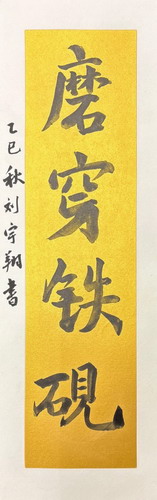 磨穿铁砚
乙巳秋刘宇翔书